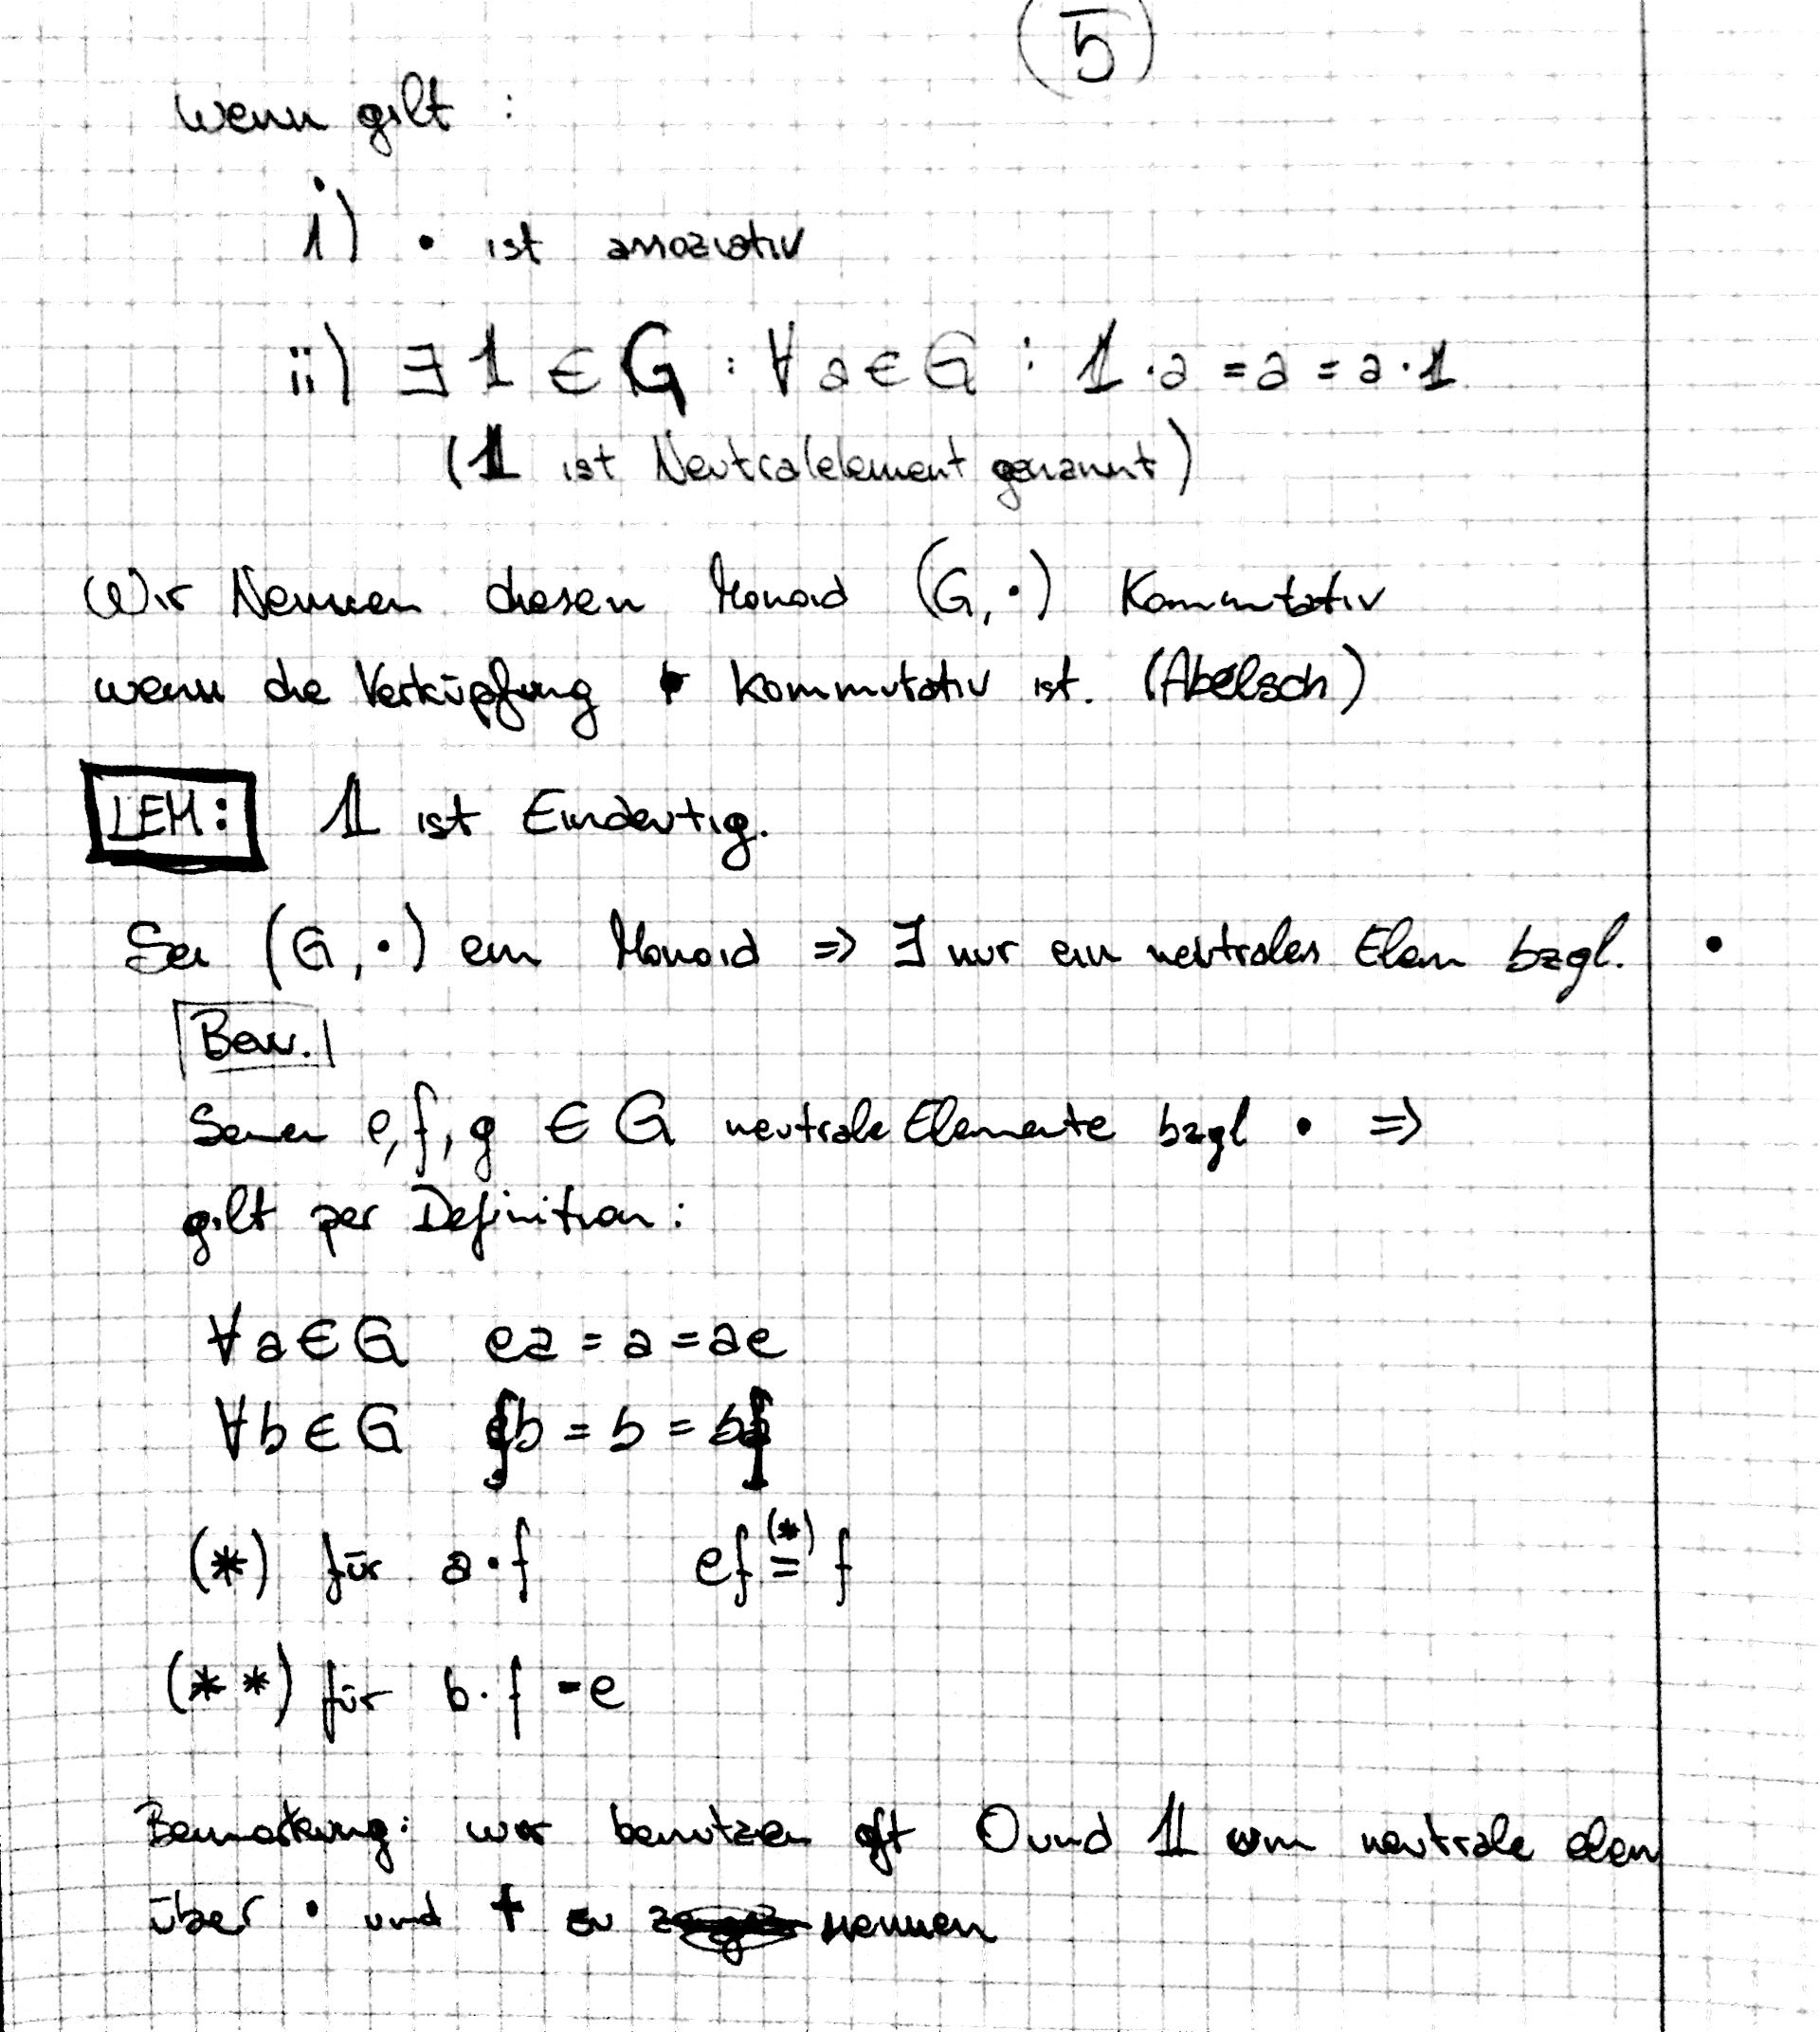 5
wenn gilt :
i) • ist assoziativ
ii) ∃ 𝟙 ∈ G : ∀ a ∈ G : 𝟙 · a = a = a · 𝟙
(𝟙 ist Neutralelement genannt)
Wir Nennen diesen Monoid (G, ·) Kommutativ
wenn die Verküpfung • kommutativ ist. (Abelsch)
LEM: 𝟙 ist Eindeutig.
Sei (G, ·) ein Monoid ⇒ ∃ nur ein neutrales Elem bzgl. •
Bew.
Seien e, f, g ∈ G neutrale Elemente bzgl • ⇒
gilt per Definition:
∀ a ∈ G ea = a = ae
∀ b ∈ G fb = b = bf
(*) für a · f ef (*)= f
(**) für b · f = e
Bemerkung: wir benutzen oft 0 und 𝟙 um neutrale elem
über • und + zu nennen